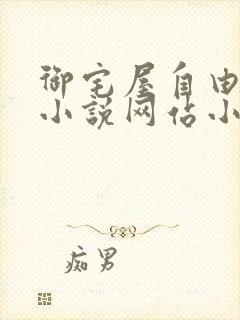 御宅屋自由
小说网站小
痴男